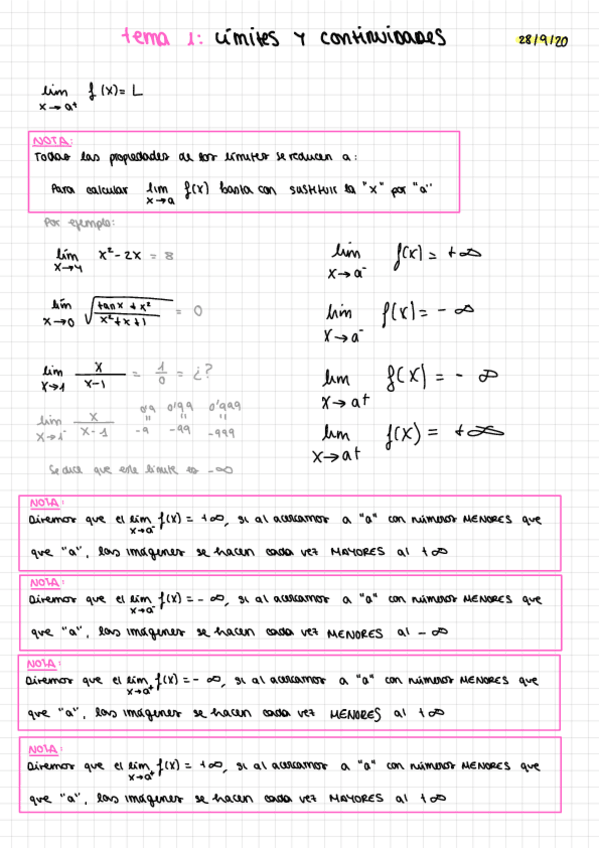 tema 1: Límites y continuidades
28/9/20
lim f(x)= L
x→a+
NOTA:
Todas las propiedades de los límites se reducen a:
Para calcular lim f(x) basta con sustituir la "x" por "a"
x→a
Por ejemplo:
lim x²-2x = 8
x→4
lim √((tan x + x²)/(x²+x+1)) = 0
x→0
lim x/(x-1) = 1/0 = ¿?
x→1
lim x/(x-1) 0'9 0'99 0'999
x→1⁻ = = =
-9 -99 -999
Se dice que este límite es -∞
lim f(x) = +∞
x→a⁻
lim f(x) = -∞
x→a⁻
lim f(x) = -∞
x→a+
lim f(x) = +∞
x→a+
NOTA:
Diremos que el lim f(x) = +∞, si al acercarnos a "a" con números MENORES que
x→a⁻
que "a", las imágenes se hacen cada vez MAYORES al +∞
NOTA:
Diremos que el lim f(x) = -∞, si al acercarnos a "a" con números MENORES que
x→a⁻
que "a", las imágenes se hacen cada vez MENORES al -∞
NOTA:
Diremos que el lim f(x) = -∞, si al acercarnos a "a" con números MENORES que
x→a+
que "a", las imágenes se hacen cada vez MENORES al +∞
NOTA:
Diremos que el lim f(x) = +∞, si al acercarnos a "a" con números MENORES que
x→a+
que "a", las imágenes se hacen cada vez MAYORES al +∞